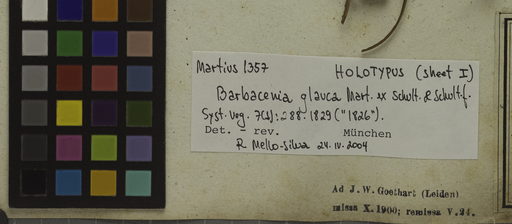 Martius 1357 HOLOTYPUS (sheet I)
Barbacenia glauca Mart. ex Schult. & Schult.f.
Syst. veg. 7(1): 288. 1829 ("1826").
Det. – rev. München
R. Mello-Silva 24.IV.2004
Ad J. W. Goethart (Leiden)
missa X. 1900; remissa V. 24.